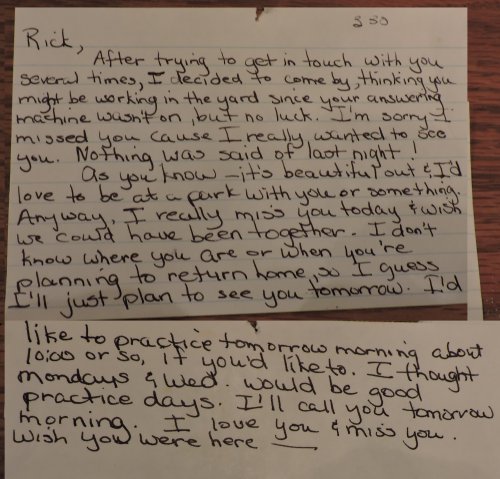 3 30
Rick,
After trying to get in touch with you
several times, I decided to come by, thinking you
might be working in the yard since your answering
machine wasn't on, but no luck. I'm sorry I
missed you cause I really wanted to see
you. Nothing was said of last night!
As you know - it's beautiful out & I'd
love to be at a park with you or something.
Anyway, I really miss you today & wish
we could have been together. I don't
know where you are or when you're
planning to return home, so I guess
I'll just plan to see you tomorrow. I'd
like to practice tomorrow morning about
10:00 or so, if you'd like to. I thought
mondays & wed. would be good
practice days. I'll call you tomorrow
morning. I love you & miss you.
Wish you were here —